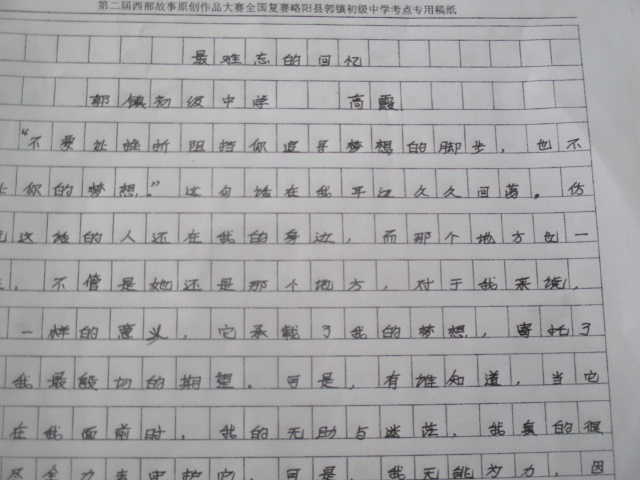 第二届西部故事原创作品大赛全国复赛略阳县郭镇初级中学考点专用稿纸
最难忘的回忆
郭镇初级中学 高霞
“不要让挫折阻挡你追寻梦想的脚步，也不
让你的梦想。”这句话在我耳边久久回荡。仿
这话的人还在我的身边，而那个地方也一
，不管是她还是那个地方，对于我来说，
一样的意义，它承载了我的梦想，寄托了
我最殷切的期望。可是，有谁知道，当它
在我面前时，我的无助与迷茫，我真的很
尽全力去守护它，可是，我无能为力，因